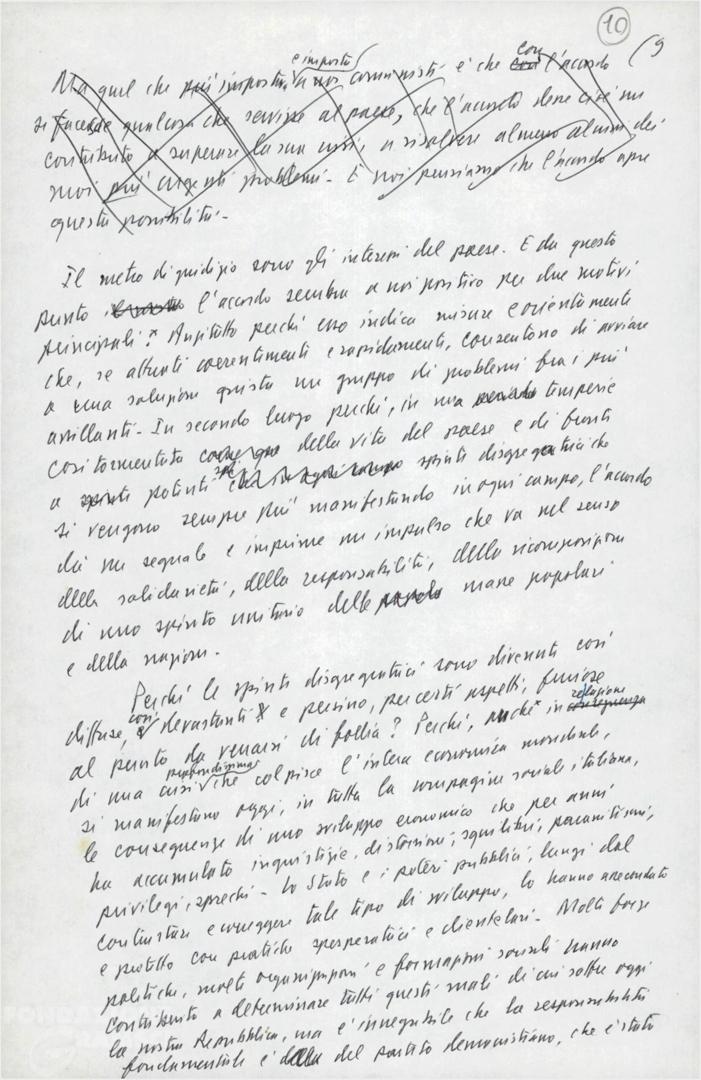 10
(9
e importa
con
Ma quel che più importa a noi comunisti è che con l'accordo
si facesse qualcosa che servisse al paese, che l'accordo desse cioè un
contributo a superare la sua crisi, a risolvere almeno alcuni dei
suoi più urgenti problemi. E noi pensiamo che l'accordo apre
questa possibilità.
Il metro di giudizio sono gli interessi del paese. E da questo
punto l'accordo sembra a noi positivo per due motivi
principali. Anzitutto perché esso indica misure e orientamenti
che, se attuati coerentemente e rapidamente, consentono di avviare
a una soluzione giusta un gruppo di problemi fra i più
assillanti. In secondo luogo perché, in una temperie
così tormentata della vita del paese e di fronte
a potenti spinte disgregatrici che
si vengono sempre più manifestando in ogni campo, l'accordo
dà un segnale e imprime un impulso che va nel senso
della solidarietà, della responsabilità, della ricomposizione
di uno spirito unitario delle masse popolari
e della nazione.
Perché le spinte disgregatrici sono divenute così
diffuse, così devastanti e persino, per certi aspetti, furiose
al punto da venarsi di follia? Perché, anche in relazione conseguenza
di una crisi profondissima che colpisce l'intera economia mondiale,
si manifestano oggi, in tutta la compagine sociale italiana,
le conseguenze di uno sviluppo economico che per anni
ha accumulato ingiustizie, distorsioni, squilibri, parassitismi,
privilegi, sprechi. Lo Stato e i poteri pubblici, lungi dal
contrastare e correggere tale tipo di sviluppo, lo hanno assecondato
e protetto con pratiche sperperatrici e clientelari. Molte forze
politiche, molte organizzazioni e formazioni sociali hanno
contribuito a determinare tutti questi mali di cui soffre oggi
la nostra Repubblica, ma è innegabile che la responsabilità
fondamentale è del partito democristiano, che è stato